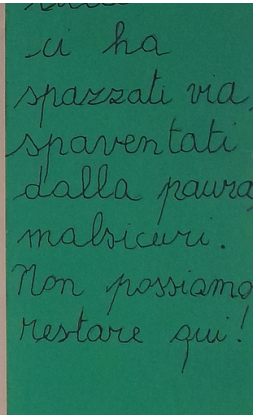 ci ha
spazzati via,
spaventati
dalla paura
malsicuri.
Non possiamo
restare qui!